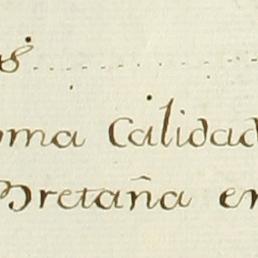 Calidad
Bretaña en